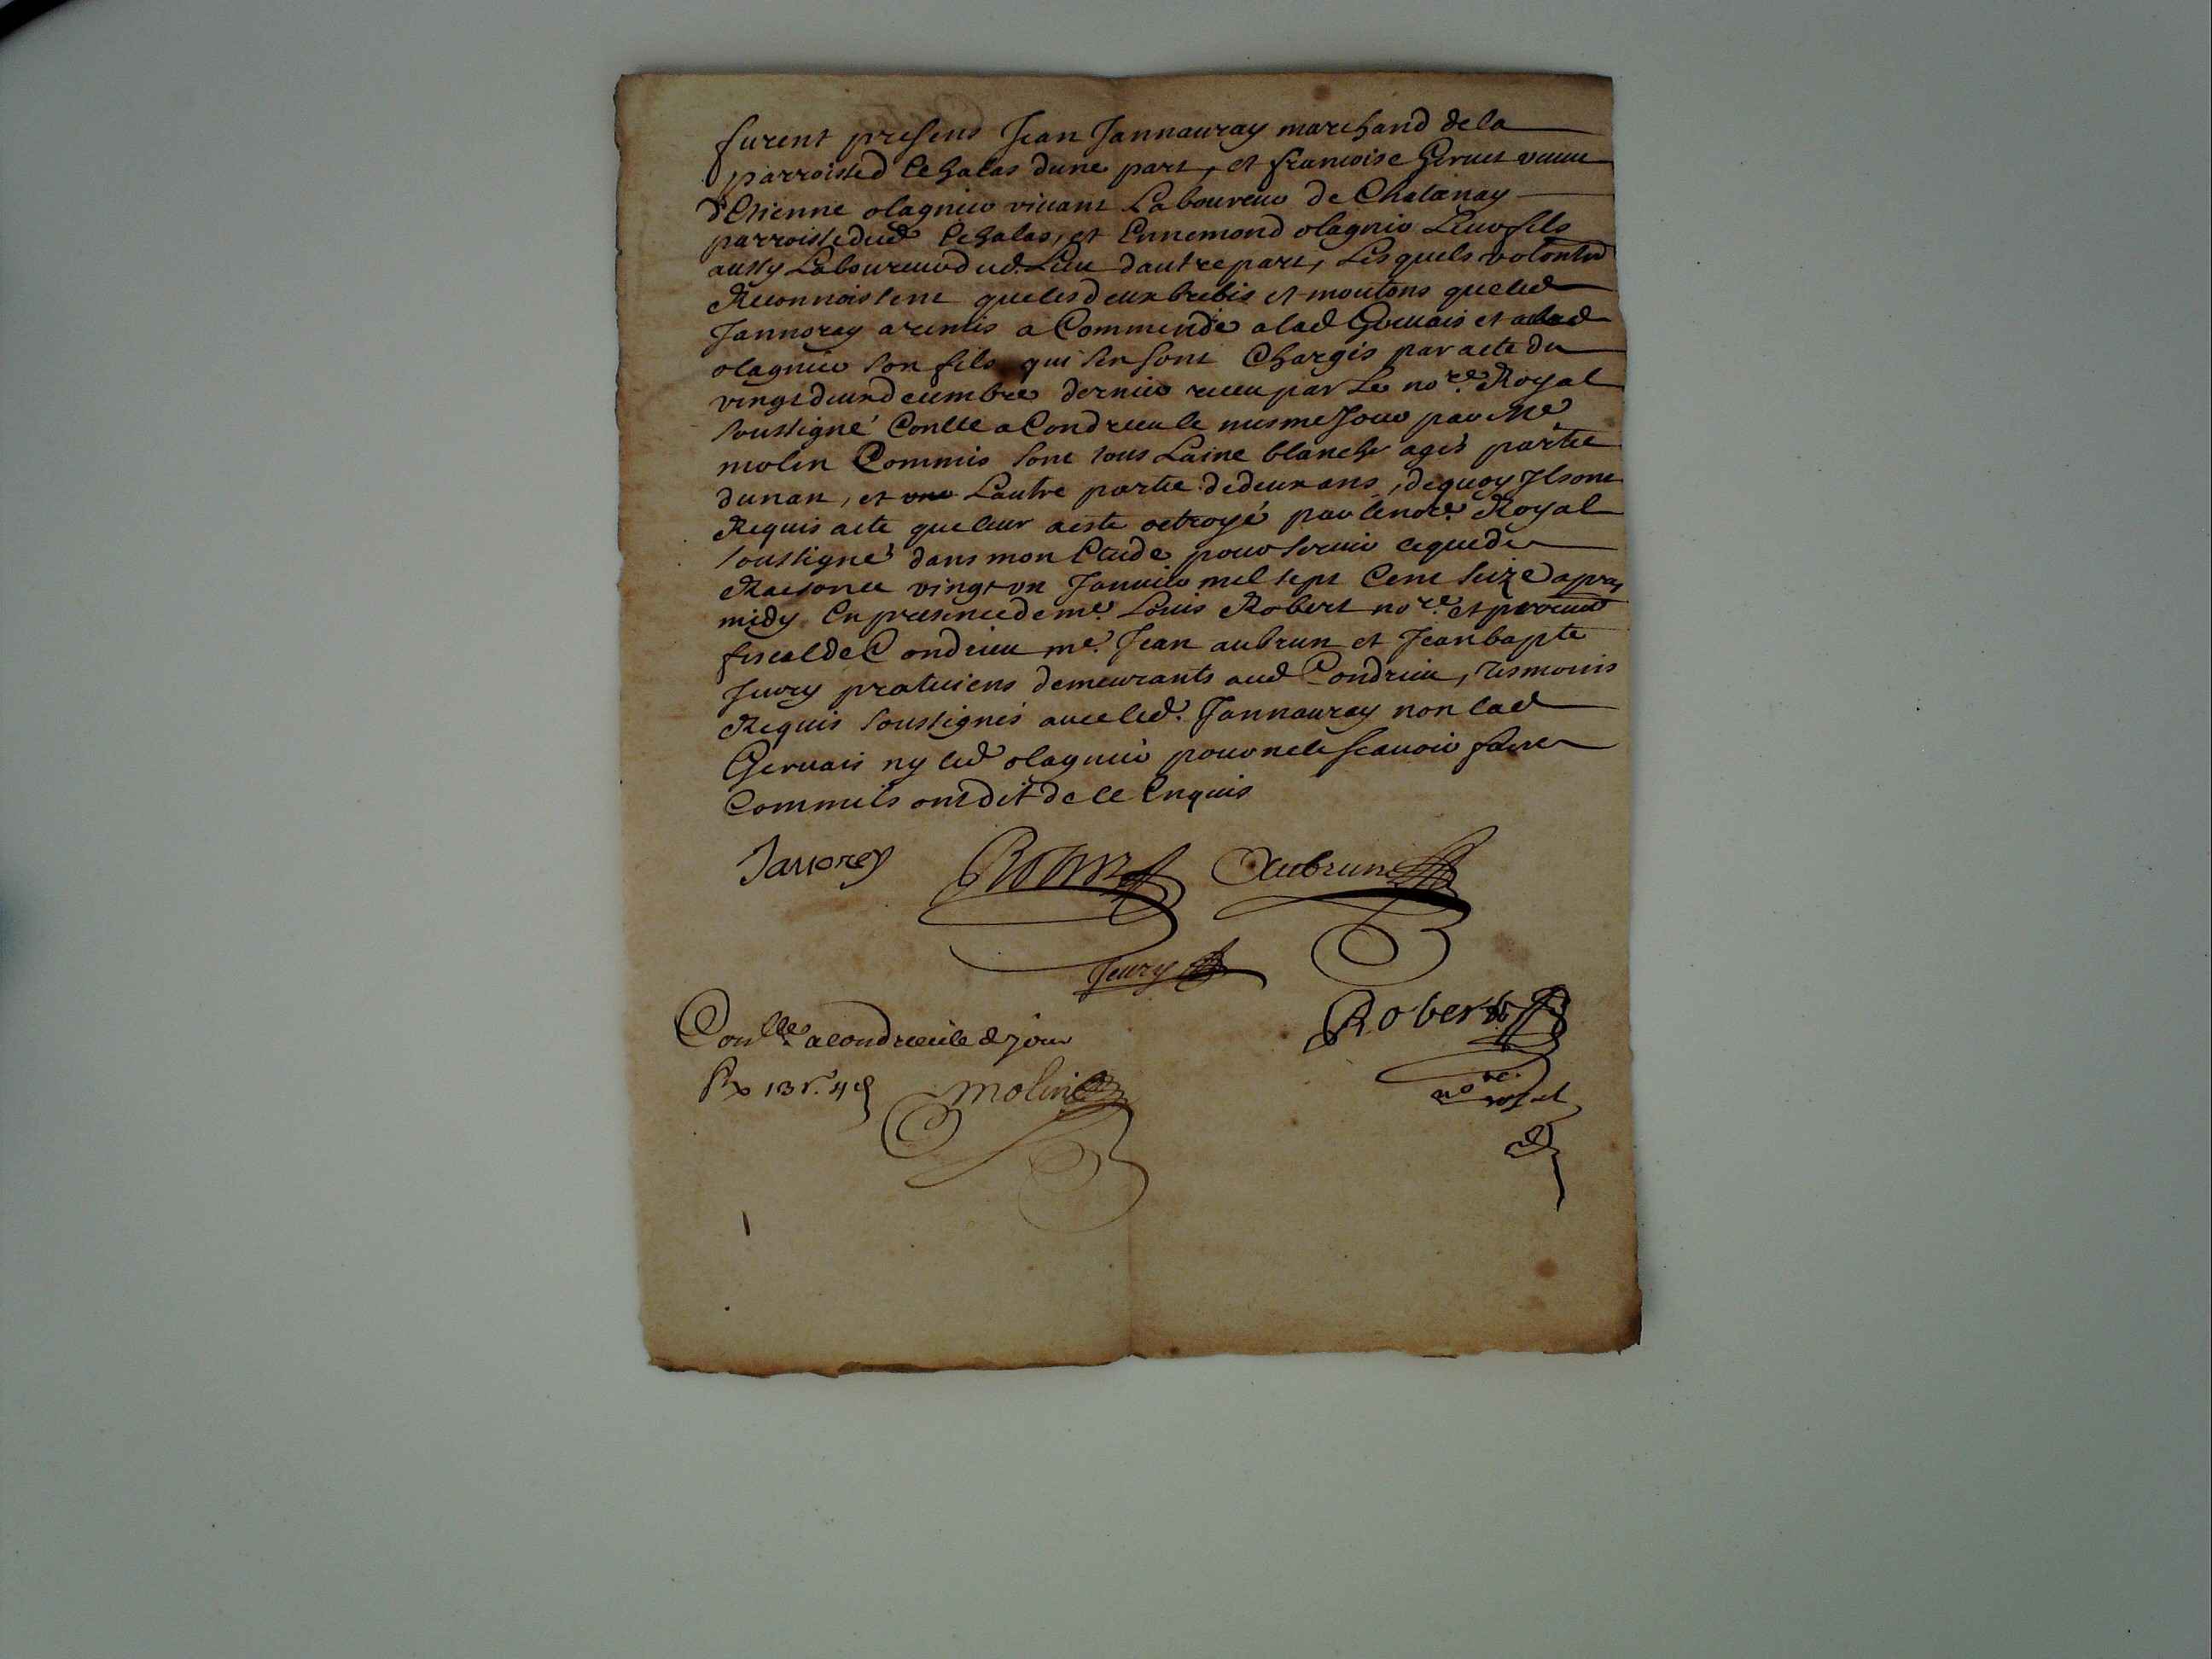 furent presens Jean Jannauray marchand dela
parroisse d'Echalas dune part, et francoise Gervais veuve
d'Etienne olagnier vivant Laboureur de Chatanay
parroisse dud Echalas, et Ennemond olagnier Leur fils
aussy Laboureur dud. Lieu dautre part, Lesquels volontrd
Reconnoissent que les deux brebis et moutons que led
Jannoray a remis a Commende a lad Gervais et aud
olagnier son fils qui sen sont Chargés par acte du
vingt deux decembre dernier receu par Le nore. Royal
soussigné Conlle a Condrieu le mesme Jour par Me
molin Commis sont tous Laine blanche agés partie
dun an, et Lautre partie de deux ans, de quoy Ils ont
Requis acte que leur a esté octroyé par le nore. Royal
soussigné dans mon Etude pour servir ce que de
Raison ce vingt un Janvier mil sept Cent seize apres
midy En presence de me. Louis Robert nore. et procureur
fiscal de Condrieu me. Jean aubrun et Jean bapte
Jury praticiens demeurants aud Condrieu, tesmoins
Requis soussignés avec led. Jannauray non lad
Gervais ny led olagnier pour ne le scavoir faire
Comme ils ont dit de ce Enquis
Janorey Robert Aubrun
Jury
Conlle. a condrieu led jour
Rx 13 s. 4 d molin
Robert
nore. royal